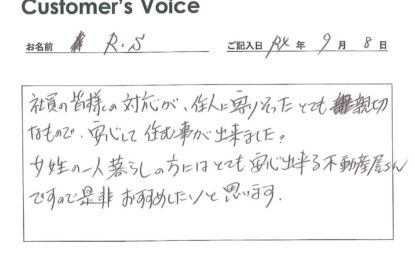 Customer's Voice
お名前 R.S ご記入日 R4 年 9 月 8 日
社員の皆様の対応が、住人に寄りそったとても親切
なもので、安心して住む事が出来ました。
女性の一人暮らしの方にはとても安心出来る不動産屋さん
ですので是非おすすめしたいと思います.